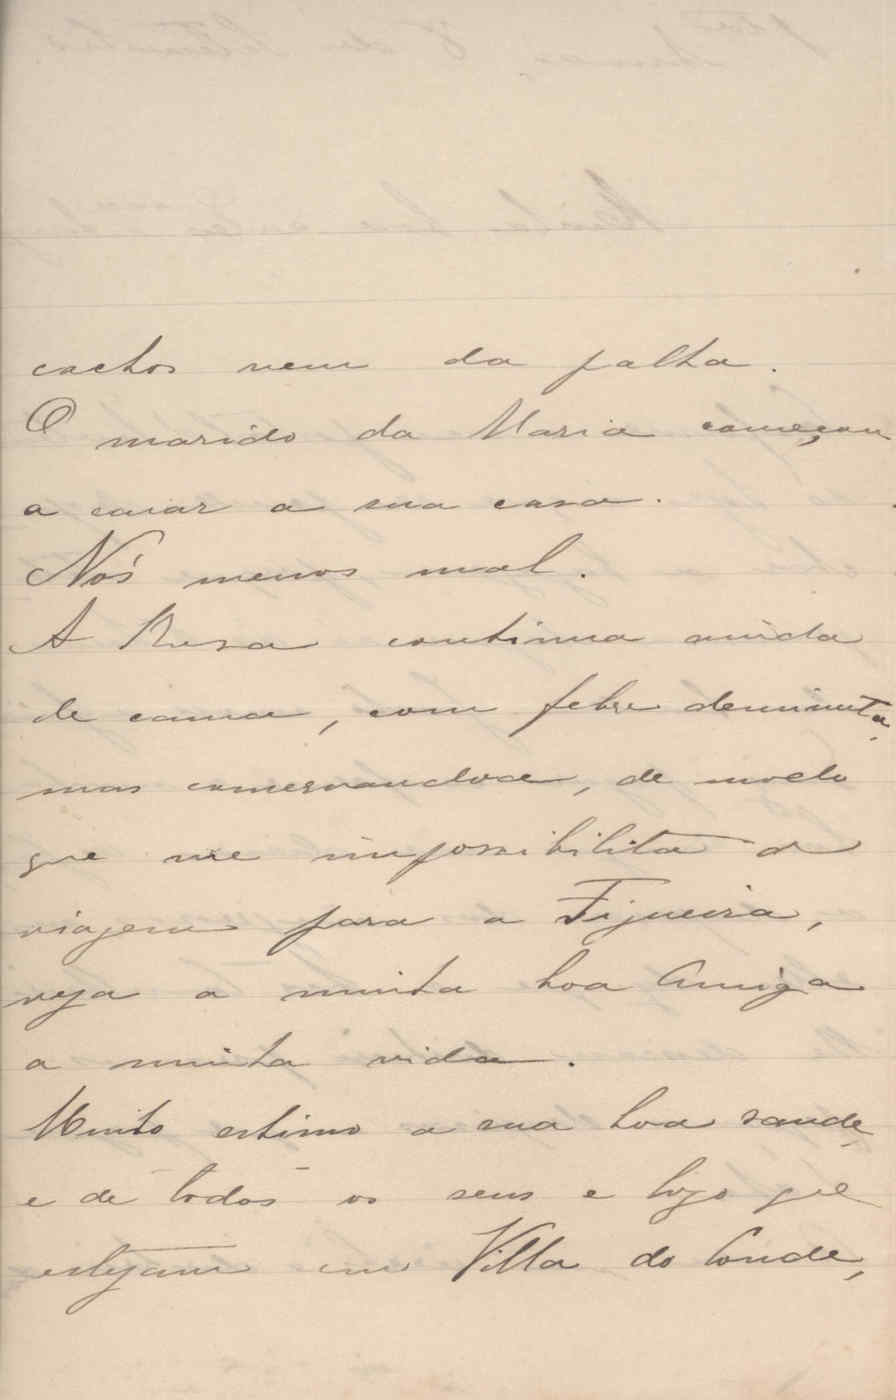 cachos nem da falha.
O marido da Maria começou
a caiar a sua casa.
Nós menos mal.
A Rosa continua ainda
de cama, com febre deminuta,
mas conservandose, de modo
que me impossibilita a
viagem para a Figueira,
veja a minha boa Amiga
a minha vida.
Muito estimo a sua boa saude,
e de todos os seus e logo que
estejam em Villa do Conde,